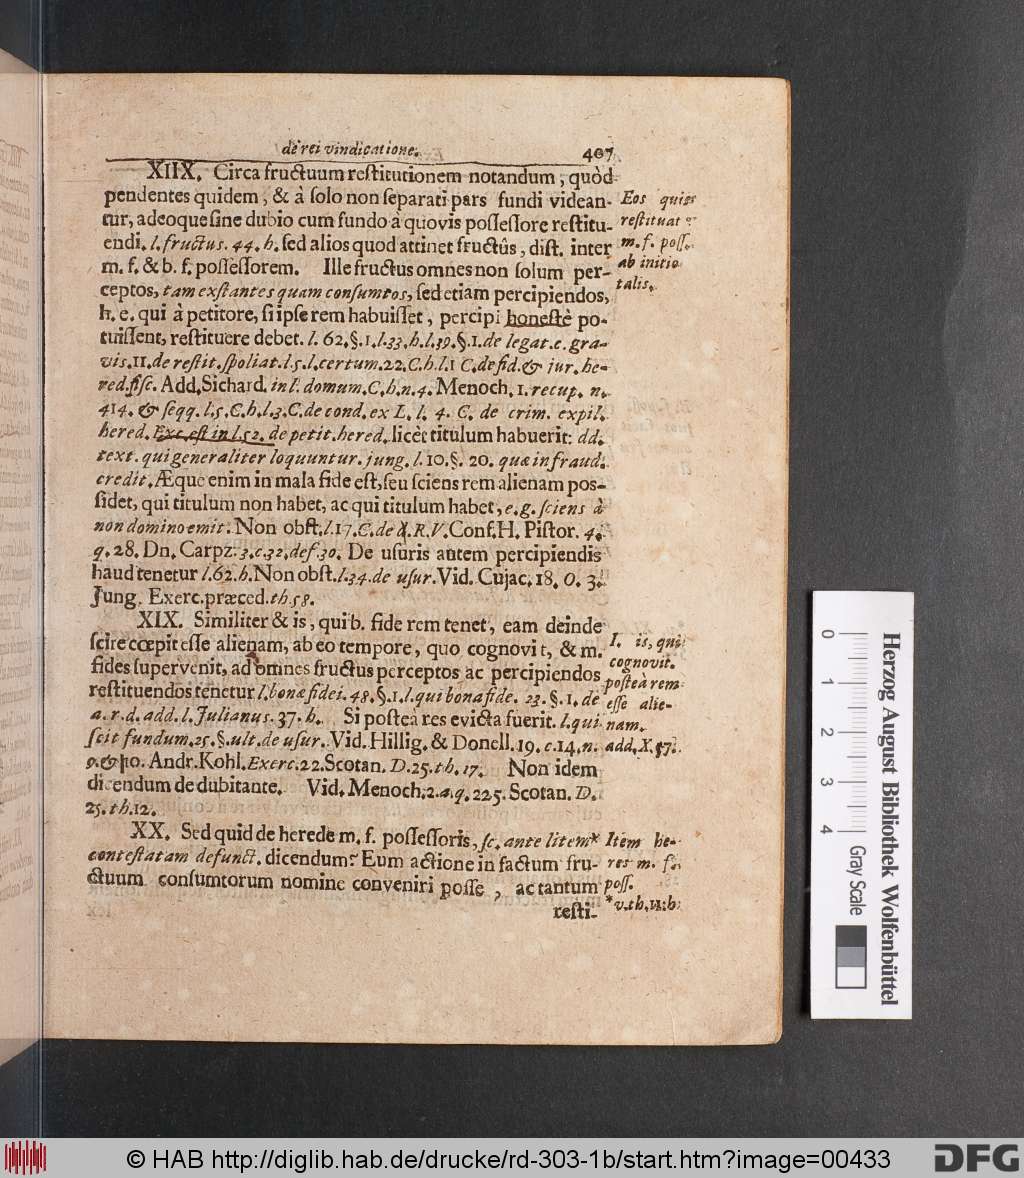 de rei vindicatione.
407
XIIX. Circa fructuum restitutionem notandum, quòd
pendentes quidem, & à solo non separati pars fundi videan-
tur, adeoque sine dubio cum fundo à quovis possessore restitu-
endi. l. fructus. 44. h. sed alios quod attinet fructûs, dist. inter
m. f. & b. f. possessorem. Ille fructus omnes non solum per-
ceptos, tam exstantes quam consumtos, sed etiam percipiendos,
h. e. qui à petitore, si ipse rem habuisset, percipi honestè po-
tuissent, restituere debet. l. 62. §. 1. l. 33. h. l. 39. §. 1. de legat. c. gra-
vis. 11. de restit. spoliat. l. 5. l. certum. 22. C. h. l. 1 C. de fid. & jur. he-
red. fisc. Add. Sichard. in l. domum. C. h. n. 4. Menoch. 1. recup. n.
414. & seqq. l. 5. C. h. l. 3. C. de cond. ex L. l. 4. C. de crim. expil.
hered. Exc. est in l. 52. de petit. hered. licèt titulum habuerit: dd.
text. qui generaliter loquuntur. jung. l. 10. §. 20. quæ in fraud.
credit. Æque enim in mala fide est, seu sciens rem alienam pos-
sidet, qui titulum non habet, ac qui titulum habet, e. g. sciens à
non domino emit. Non obst. l. 17. C. de R. V. Conf. H. Pistor. 4.
q. 28. Dn. Carpz. 3. c. 32. def. 30. De usuris autem percipiendis
haud tenetur l. 62. h. Non obst. l. 34. de usur. Vid. Cujac. 18. O. 3.
Jung. Exerc. præced. th. 58.
XIX. Similiter & is, qui b. fide rem tenet, eam deinde
scire cœpit esse alienam, ab eo tempore, quo cognovit, & m.
fides supervenit, ad omnes fructus perceptos ac percipiendos
restituendos tenetur l. bonæ fidei. 48. §. 1. l. qui bona fide. 23. §. 1. de
a. r. d. add. l. Julianus. 37. h. Si postea res evicta fuerit. l. qui
scit fundum. 25. §. ult. de usur. Vid. Hillig. & Donell. 19. c. 14. n.
9. & 10. Andr. Kohl. Exerc. 22. Scotan. D. 25. th. 17. Non idem
dicendum de dubitante. Vid. Menoch. 2. a. q. 225. Scotan. D.
25. th. 12.
XX. Sed quid de herede m. f. possessoris, sc. ante litem*
contestatam defunct. dicendum? Eum actione in factum fru-
ctuum consumtorum nomine conveniri posse, ac tantum
resti-
Eos quis
restituat
m. f. poss.
ab initio
talis.
I. is, qui
cognovit.
posteà rem
esse alie-
nam.
add. X. 57.
Item he-
res m. f.
poss.
*v. th. 11. h.
0 1 2 3 4
Gray Scale
Herzog August Bibliothek Wolfenbüttel
© HAB http://diglib.hab.de/drucke/rd-303-1b/start.htm?image=00433
DFG